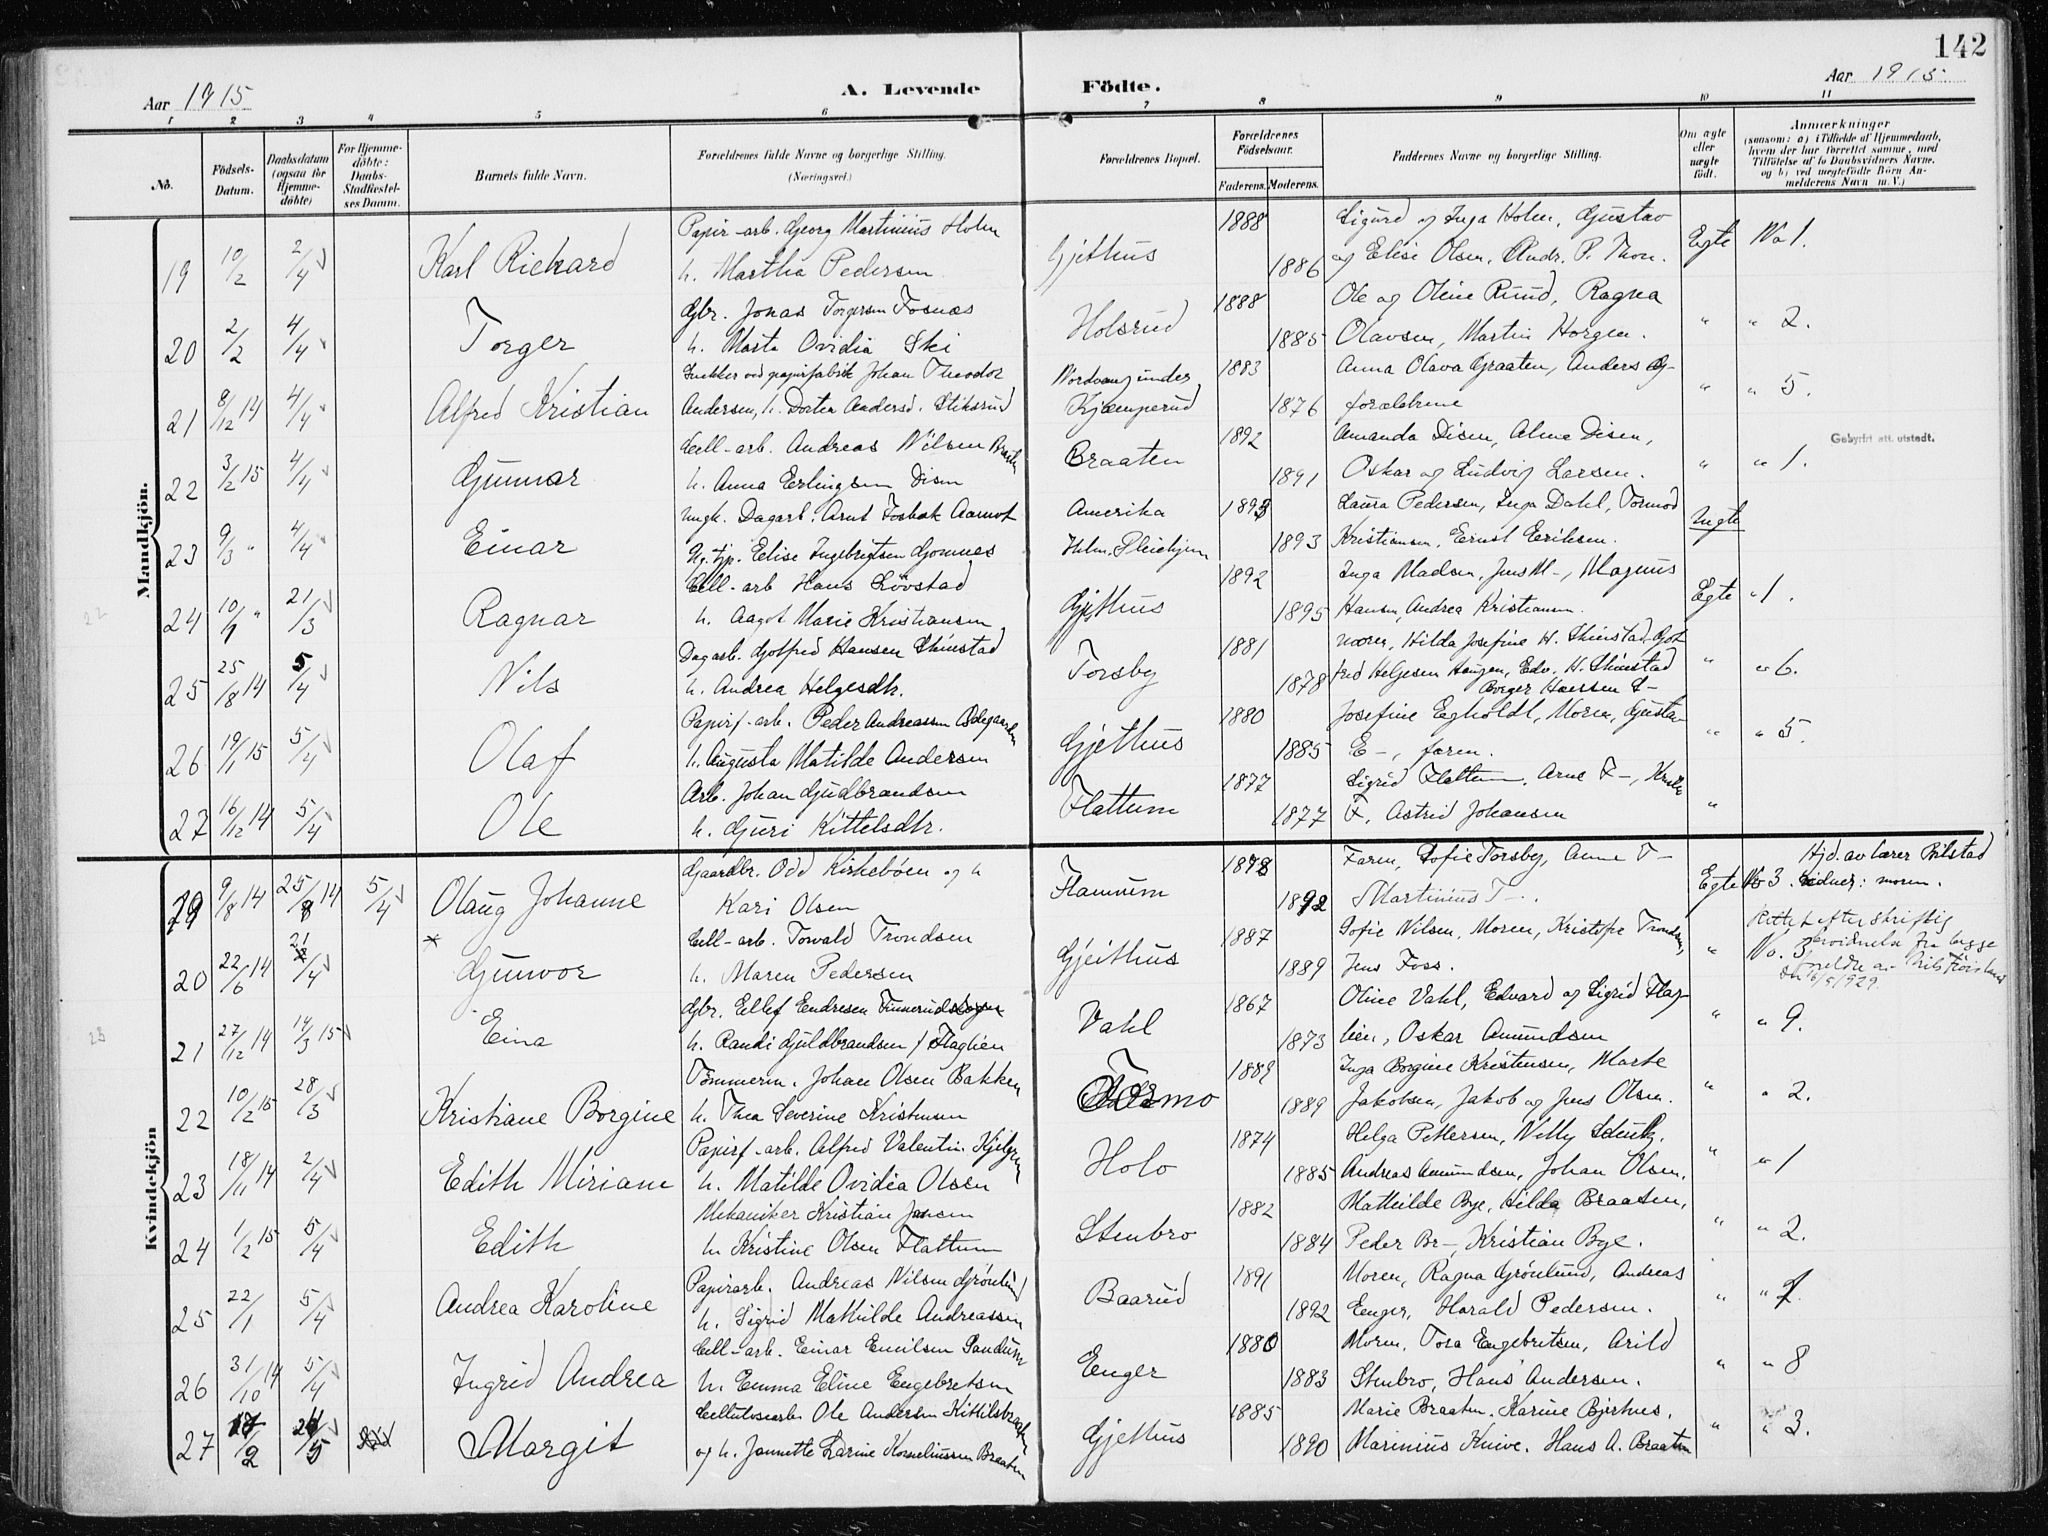 142
Aar 1915 A. Levende Födte. Aar 1915
1 2 3 4 5 6 7 8 9 10 11
No. Födsels-Datum. Daabsdatum (ogsaa for Hjemme-döbte) For Hjemme-döbte: Daabs-Stadfæstel-ses Datum. Barnets fulde Navn. Forældrenes fulde Navne og borgerlige Stilling. (Næringsvei.) Forældrenes Bopæl. Forældrenes Födselsaar. Faderens. Moderens. Faddernes Navne og borgerlige Stilling. Om ægte eller uægte födt. Anmærkninger (saasom: a) i Tilfælde af Hjemmedaab, hvem der har forrettet samme, med Tilföielse af to Daabsvidners Navne. og b) ved uegtefödte Börn An-melderens Navn m. V.)
Mandkjön.
Papir-arb. Georg Martinius Holm 1888 Sigurd og Inga Holm, Gustav
19 10/2 2/4 Karl Rickard h. Martha Pedersen Gjethus 1886 og Elise Olsen, Andr. P. Thon. Egte No 1.
Gbr. Jonas Torgersen Fosnæs 1888 Ole og Oline Ruud, Ragna
20 2/2 4/4 Torger h. Marta Ovidia Ski Holsrud 1885 Olavsen, Martin Horgen. " " 2.
Snekker ved papirfabrik Johan Theodor Nordvang under 1883 Anna Olava Graaten, Anders G-
21 8/12 14 4/4 Alfred Kristian Andersen, h. Dortea Andersd. Stiksrud Kjæmperud 1876 forældrene " " 5.
Cell-arb. Andreas Nilsen Braaten 1892 Amanda Disen, Alma Disen, Gebyrfri att. utstedt.
22 3/2 15 4/4 Gunnar h. Anna Erlingsen Disen Braaten 1891 Oskar og Ludvig Larsen. " " 1.
Ungk. Dagarb. Arnt Fosbak Aamot Amerika 1893 Laura Pedersen, Inga Dahl, Tormod
23 9/3 " 4/4 Einar Pg. tjp. Elise Ingebrigtsen Gomnes 1893 Kristiansen, Ernst Eriksen. Uegte
Cell-arb Hans Lövstad 1892 Inga Madsen, Jens M-, Magnus
24 10/1 " 21/3 Ragnar h. Aagot Marie Kristiansen Gjethus 1895 Hansen, Andrea Kristiansen. Egte " 1.
Dagarb. Gotfred Hansen Skinstad 1881 Moren, Hilda Josefine H. Skinstad, Got-
25 25/8 14 5/4 Nils h. Andrea Helgesdtr. Torsby 1878 fred Helgesen Haugen, Edv. H. Skinstad " " 6.
Borger Hansen S-
Papirf-arb. Peder Andreassen Ödegaarden 1880 Josefine Egholdt, Moren, Gusta-
26 19/1 15 5/4 Olaf h. Augusta Matilde Andersen Gjethus 1885 E-, faren. " " 5.
Arb. Johan Gudbrandsen 1877 Sigrid Flattum, Arne F-,
27 16/12 14 5/4 Ole h. Guri Kittelsdtr. Flattum 1877 F, Astrid Johansen "
Kvindekjön
Gaardbr. Odd Kirkebøen og h 1878 Faren, Sofie Torsby, Anne T- Hjd. av lærer Bilstad
19 9/8 14 25/8 14 5/4 Olaug Johanne Kari Olsen Flannum 1892 Martinius T-. Egte No 3. vidner: moren.
* Cell-arb. Torvald Trondsen 1887 Sofie Nilsen, Moren, Kristofer Trondsen,
20 22/6 14 21/4 Gunvor h. Maren Pedersen Gjeithus 1889 Jens Foss. " No. 3.
Gbr. Ellef Endresen Finnerud 1867 Oline Vahl, Edvard og Sigrid Flag-
21 27/12 14 14/3 15 Eina h. Randi Guldbrandsen f Flaglien Vahl 1873 lien, Oskar Amundsen " " 9.
Tömmerm. Johan Olsen Bakken 1889 Inga Borgine Kristensen, Marte
22 10/2 15 28/3 Kristiane Borgine h. Thea Severine Kristensen Formo 1889 Jakobsen, Jakob og Jens Olsen. " " 2.
Papirf-arb. Alfred Valentin Kjelgren 1874 Helga Pettersen, Willy Schulz,
23 18/11 14 2/4 Edith Miriam h. Matilde Ovidia Olsen Holo 1885 Andreas Amundsen, Johan Olsen. " " 1
Mekaniker Kristian Jansen 1882 Mathilde Bye, Hilda Braaten,
24 1/2 15 5/4 Edith h. Kristine Olsen Flattum Stenbro 1884 Peder Br-, Kristian Bye. " " 2.
Papirarb. Andreas Nilsen Grönlund 1891 Moren, Ragna Grönlund, Andreas
25 22/1 5/4 Andrea Karoline h. Sigrid Mathilde Andreassen Baarud 1892 Enger, Harald Pedersen. "
Cell-arb. Einar Emilsen Sandum 1880 Moren, Tora Engebretsen, Arild
26 31/10 14 5/4 Ingrid Andrea h. Emma Eline Engebretsen Enger 1883 Stenbro, Hans Andersen. " " 8
Cellulosearb. Ole Andersen Kittilsbraaten 1885 Marie Braaten, Karine Bjerhus,
27 17/2 24/5 Margit og h. Jannette Larine Korneliussen Braaten Gjethus 1890 Marinius Knive, Hans A. Braaten " " 3.